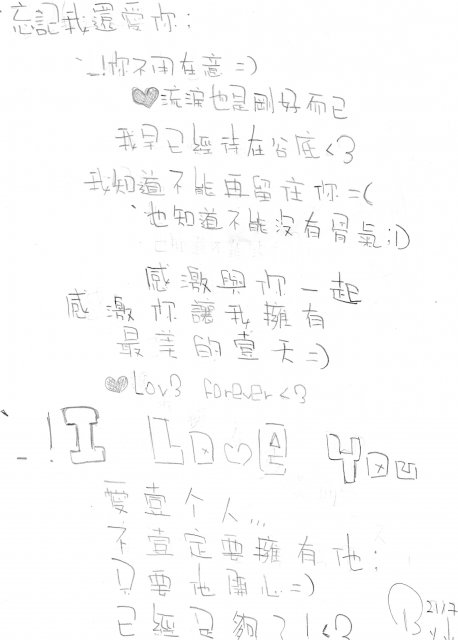 忘記我還愛你;
、_!你不用在意=)
♥流淚也是剛好而已
我早已經待在谷底<3
我知道不能再留住你=(
、也知道不能沒有骨氣;D
感激與你一起
感激你讓我擁有
最美的壹天=)
♥Lov3 forever<3
、_!I Lo♡e You
愛壹个人...
不壹定要擁有他;
只要他開心=)
已經足夠了!<3
2117